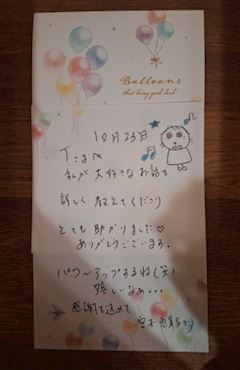 Balloons
that bring good luck
10月23日
Tさまへ
私が大好きなお話を
詳しく教えてくださり
とても助かりました♡
ありがとうございます。
パワーアップするね(笑)
嬉しいなぁ...
感謝を込めて